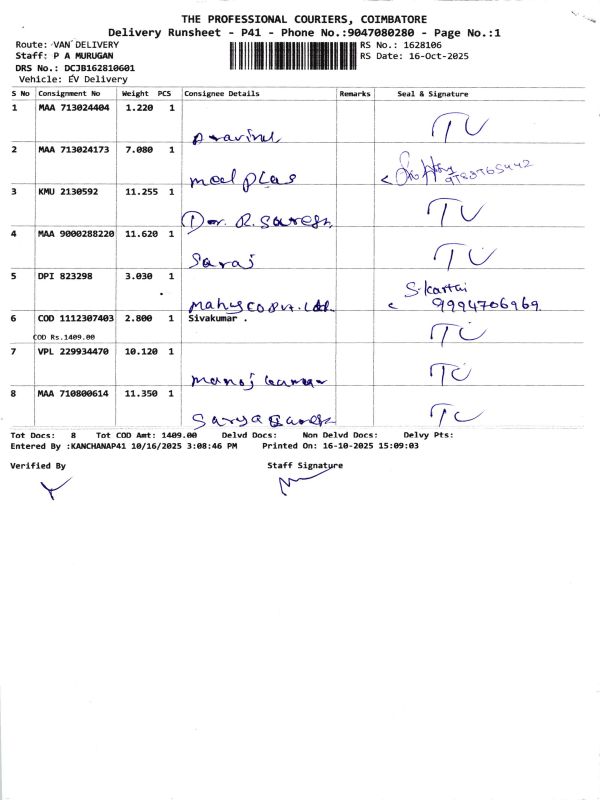 THE PROFESSIONAL COURIERS, COIMBATORE
Delivery Runsheet - P41 - Phone No.:9047080280 - Page No.:1
Route: VAN DELIVERY RS No.: 1628106
Staff: P A MURUGAN RS Date: 16-Oct-2025
DRS No.: DCJB162810601
Vehicle: EV Delivery
S No Consignment No Weight PCS Consignee Details Remarks Seal & Signature
1 MAA 713024404 1.220 1
Aravind TU
2 MAA 713024173 7.080 1
mod plas
3 KMU 2130592 11.255 1
R. Suresh TU
4 MAA 9000288220 11.620 1
Saraj TU
5 DPI 823298 3.030 1 S.kartai
Mahyco Pvt. Ltd. 9994706969
6 COD 1112307403 2.800 1 Sivakumar . TU
COD Rs.1409.00
7 VPL 229934470 10.120 1
manoj kumar TU
8 MAA 710800614 11.350 1
TU
Tot Docs: 8 Tot COD Amt: 1409.00 Delvd Docs: Non Delvd Docs: Delvy Pts:
Entered By :KANCHANAP41 10/16/2025 3:08:46 PM Printed On: 16-10-2025 15:09:03
Verified By Staff Signature